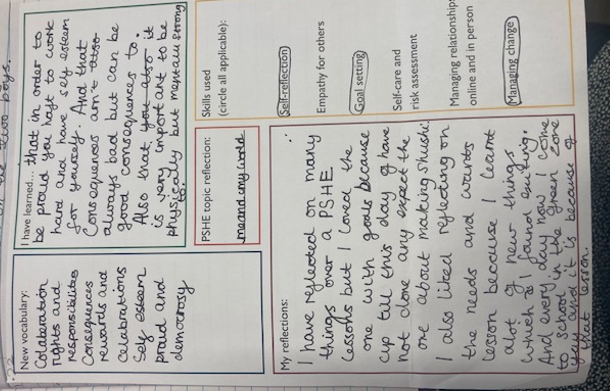 New vocabulary:
Colaberation
rights and
responsibilites
Consequences
rewards and
celabrations
Self esteem
proud and
democrosy
I have learned... that in order to
be proud you haft to work
hard and have self esteem
for yourself. And that
Consequences arn't also
always bad but can be
good consequences to.
Also that you also it
is very important to be
physically but mentaln strong
to.
PSHE topic reflection:
me and my world
Skills used
(circle all applicable):
Self-reflection
Empathy for others
Goal setting
Self-care and
risk assessment
Managing relationships
online and in person
Managing change
My reflections:
I have reflected on many
things over a PSHE
lessons but I loved the
one with goals because
cup till this day of have
not done any expect the
one about making Shushi
I also liked reflecting on
the needs and wants
lesson because I learnt
alot of new things
which as I found exiting.
And every day now I come
to school in the green zone
you and it is because of
that lesson.
on the two boys.